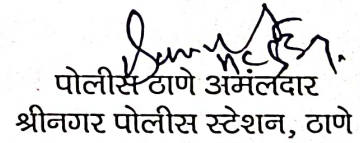 पोलीस ठाणे अमंलदार
श्रीनगर पोलीस स्टेशन, ठाणे